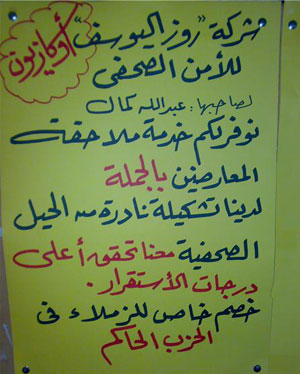 أوكازيون
شركة "روز اليوسف"
للأمن الصحفى
لصاحبها : عبدالله كمال
نوفر لكم خدمة ملاحقة
المعارضين بالجملة
لدينا تشكيلة نادرة من الحيل
الصحفية معنا تحقق أعلى
درجات الأستقرار .
خصم خاص للزملاء فى
الحزب الحاكم